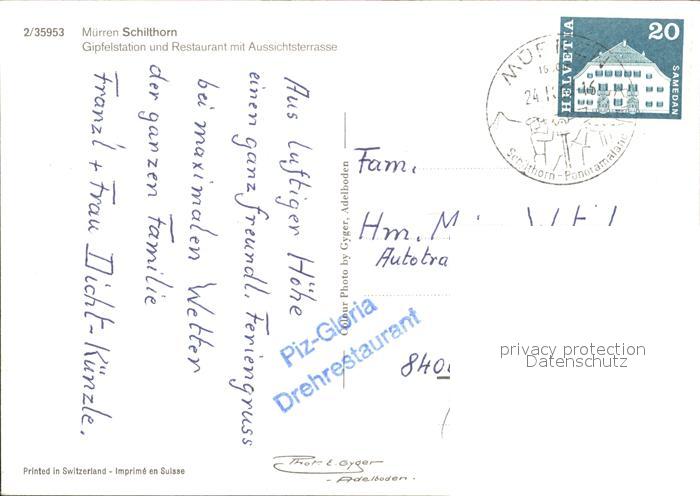 2/35953 Mürren Schilthorn
Gipfelstation und Restaurant mit Aussichtsterrasse
HELVETIA
20
SAMEDAN
MÜRREN
24.
Schilthorn-Panorama
Aus luftiger Höhe
einen ganz freundl. Feriengruss
bei maximalen Wetter
der ganzen Familie
Franz'l + Frau Dicht-Künzle.
Colour Photo by Gyger, Adelboden
Fam.
Hrn.
Autotra
840
Piz-Gloria
Drehrestaurant
privacy protection
Datenschutz
Printed in Switzerland - Imprimé en Suisse
Phot. E. Gyger
- Adelboden.